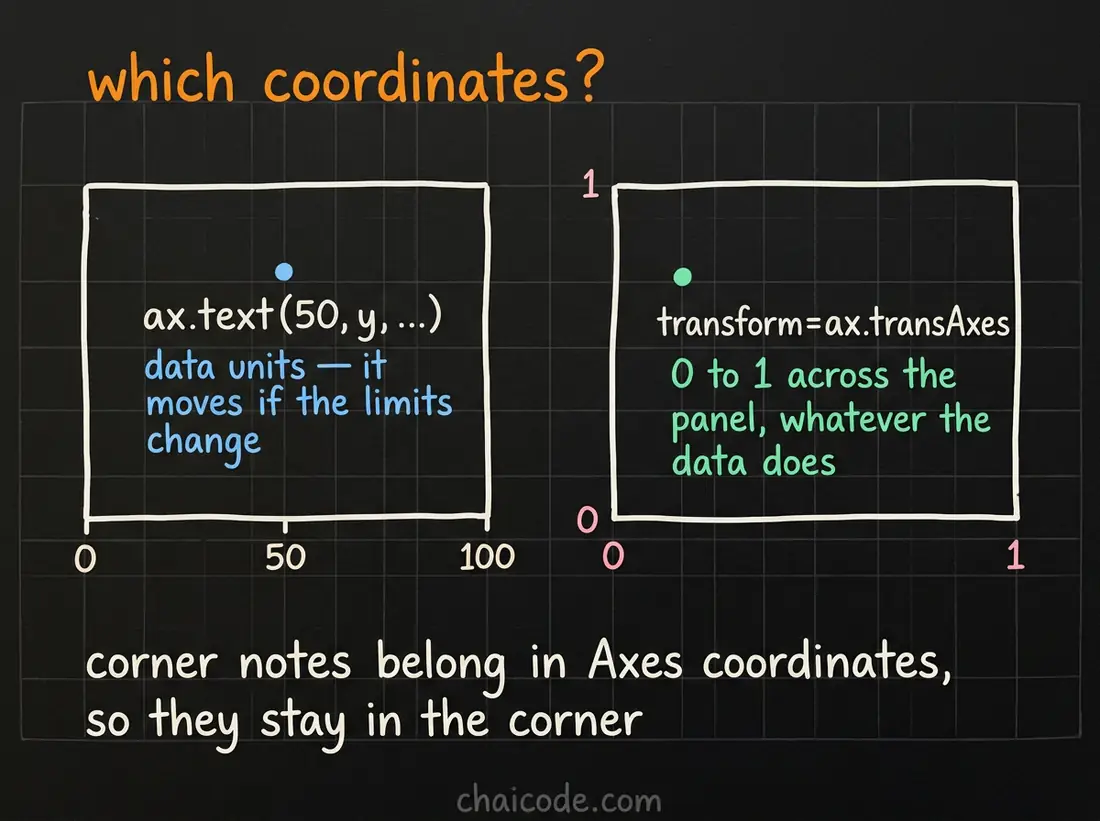 which coordinates?
ax.text(50, y, ...)
data units — it
moves if the limits
change
0
50
100
1
transform=ax.transAxes
0 to 1 across the
panel, whatever the
data does
0
0
1
corner notes belong in Axes coordinates,
so they stay in the corner
chaicode.com